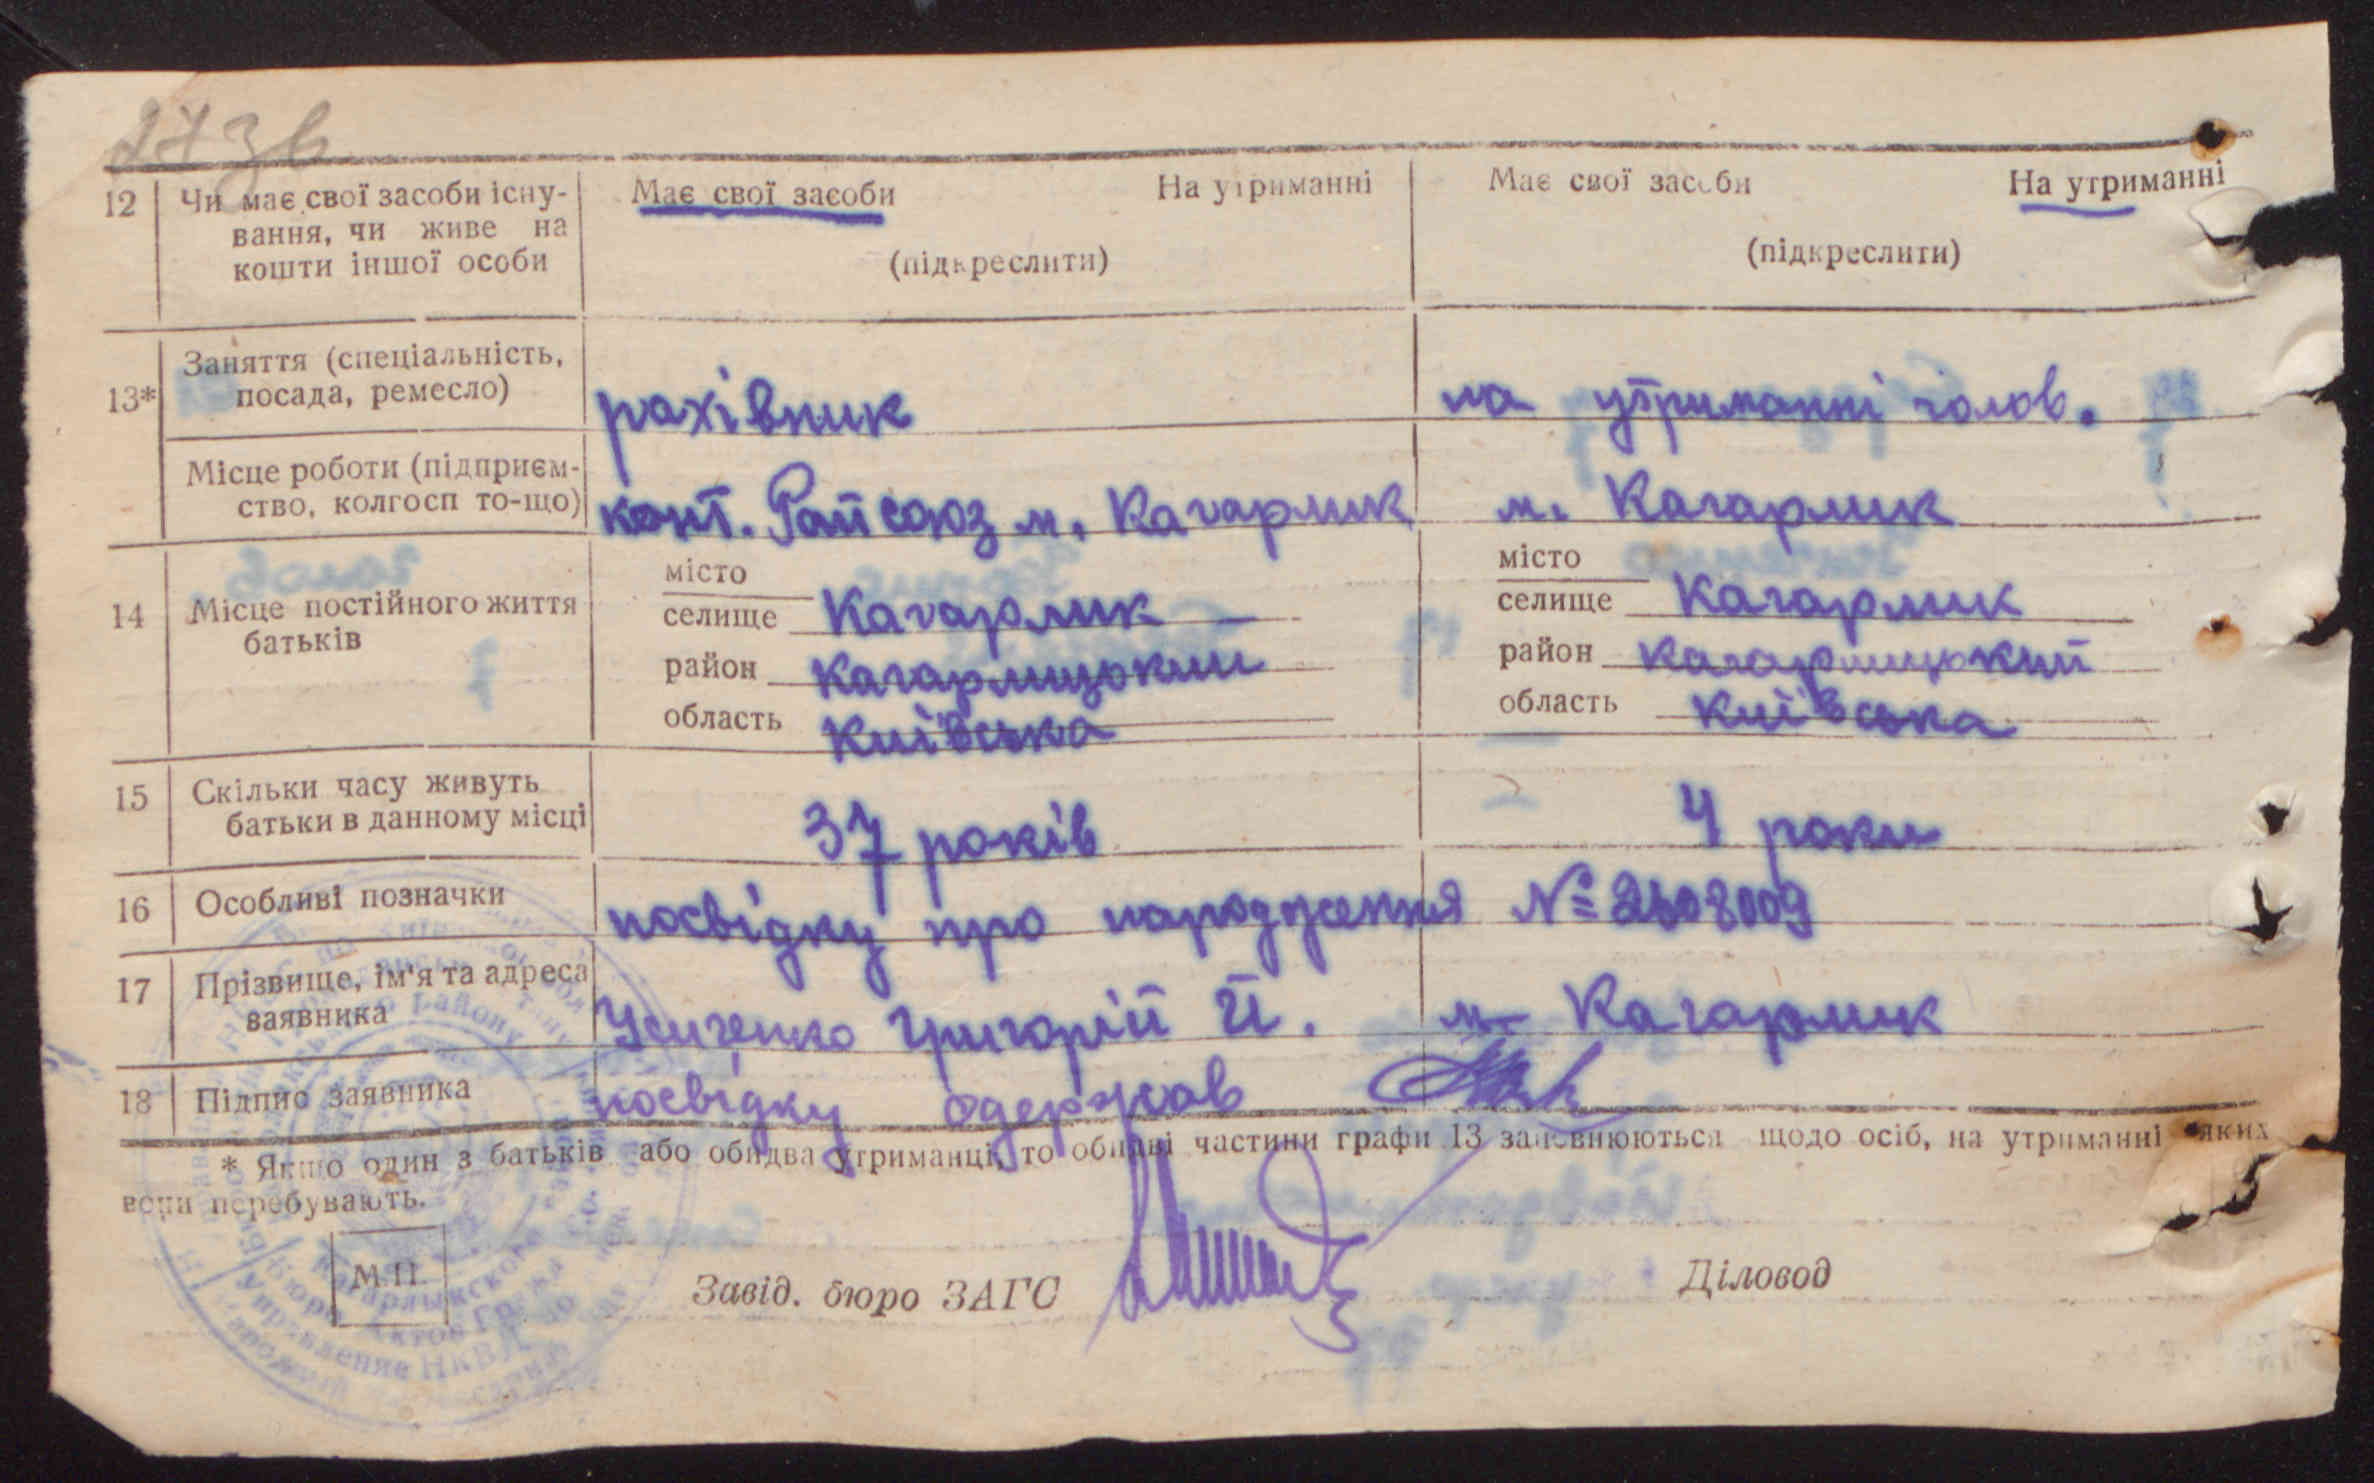 273в
12 Чи має свої засоби існу- Має свої засоби На утриманні Має свої засоби На утриманні
вання, чи живе на
кошти іншої особи (підкреслити) (підкреслити)
Заняття (спеціальність,
13* посада, ремесло) рахівник на утриманні чолов.
Місце роботи (підприєм-
ство, колгосп то-що) конт. Райсоюз м. Кагарлик м. Кагарлик
місто місто
14 Місце постійного життя селище Кагарлик селище Кагарлик
батьків район Кагарлицький район Кагарлицький
область Київська область Київська
15 Скільки часу живуть
батьки в данному місці 37 років 4 роки
16 Особливі позначки посвідку про народження №
17 Прізвище, ім'я та адреса
заявника Григорій Й. м. Кагарлик
18 Підпис заявника посвідку одержав
* Якщо один з батьків або обидва утриманці, то обидві частини графи 13 заповнюються щодо осіб, на утриманні яких
вони перебувають.
М.П.
Завід. бюро ЗАГС Діловод